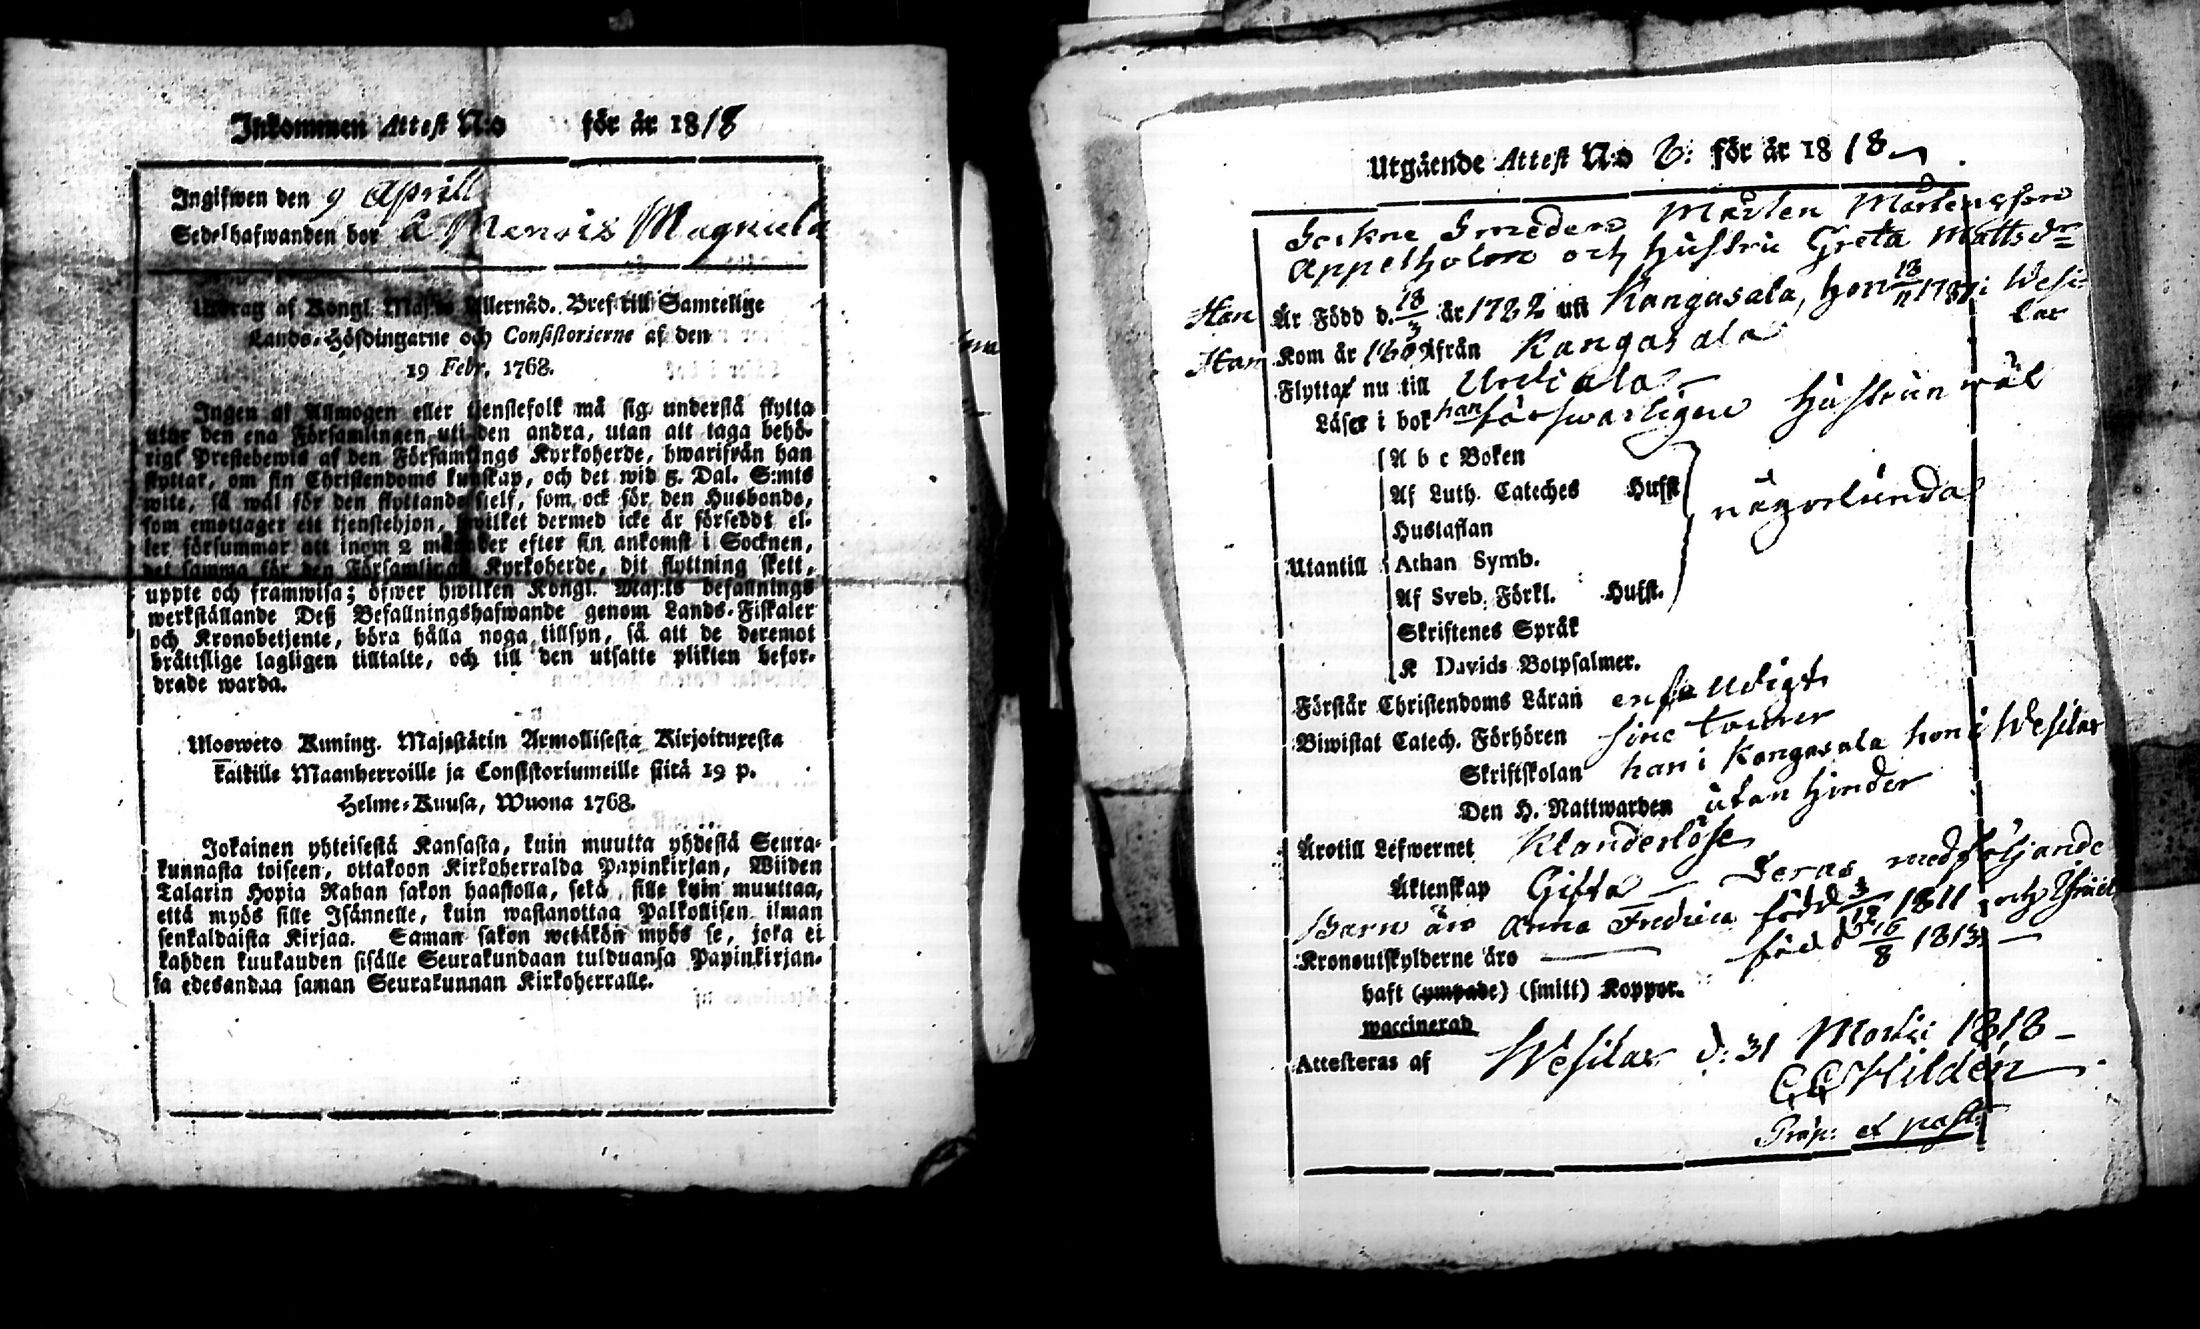 Inkommen Attest N:o för år 1818
Ingifwen den 9 Aprill
Sedelhafwanden bor å Menois Magnula
Utdrag af Kongl. Maj:ts Allernåd. Bref till Samtelige
Lands-Höfdingarne och Consistorierne af den
19 Febr. 1768.
Ingen af Allmogen eller tjenstefolk må sig understå flytta
utur den ena Församlingen uti den andra, utan att taga behö-
rigt Prestebewis af den Församlings Kyrkoherde, hwarifrån han
flyttar, om sin Christendoms kunskap, och det wid 5. Dal. S:mts
wite, så wäl för den flyttande sielf, som ock för den Husbonde,
som emottager ett tjenstehjon, hwilket dermed icke är försedt el-
ler försummar att inom 2 månader efter sin ankomst i Socknen,
det samma för den Församlings Kyrkoherde, dit flyttning skett,
uppte och framwisa; öfwer hwilken Kongl. Maj:ts befallnings
werkställande Deß Befallningshafwande genom Lands-Fiskaler
och Kronobetjente, böra hålla noga tillsyn, så att de deremot
bråttslige lagligen tilltalte, och till den utsatte plikten befor-
drade warda.
Ulosweto Kuning. Majestätin Armollisesta Kirjoituxesta
kaikille Maanherroille ja Consistoriumeille siitä 19 p.
Helme-Kuusa, Wuona 1768.
Jokainen yhteisestä Kansasta, kuin muutta yhdestä Seura-
kunnasta toiseen, ottakoon Kirkoherralda Papinkirjan, Wiiden
Talarin Hopia Rahan sakon haastolla, sekä sille kuin muuttaa,
että myös sille Isännelle, kuin wastanottaa Palkollisen ilman
senkaldaista Kirjaa. Saman sakon wetäkön myös se, joka ei
kahden kuukauden sisälle Seurakundaan tulduansa Papinkirjan-
sa edesandaa saman Seurakunnan Kirkoherralle.
Utgående Attest N:o 8: för år 1818
Sockne Smeden Mårten Mårtensson
Appelholm och hustru Greta Mattsdr
Han Är Född d. 18/3 år 1782 uti Kangasala, hon 18/11 1781 i Wesi-
lax
Han Kom år 1809 ifrån Kangasala
Flyttar nu till Urdiala
Läser i bok han försvarligen Hustrun wäl
A b c Boken
Af Luth. Cateches Hufst
Hustaflan
någorlunda
Utantill Athan Symb.
Af Sveb. Förkl. Hufst.
Skriftenes Språk
K Davids Botpsalmer.
Förstår Christendoms Läran enfaldigt
Biwistat Catech. Förhören sine tourer
Skriftskolan han i Kangasala hon i Wesilax
Den H. Nattwarden utan hinder
Ärotill Lefwernet Klanderlöse
Äktenskap Gifta Deras medföljande
Barn äro Anna Fredrica född 3/12 1811 och
Kronoutskylderne äro född 16/8 1813
haft (ympade) (smitt) Koppor.
waccinerad
Attesteras af Wesilax d: 31 Martii 1818
Hildén
Præp: et past: